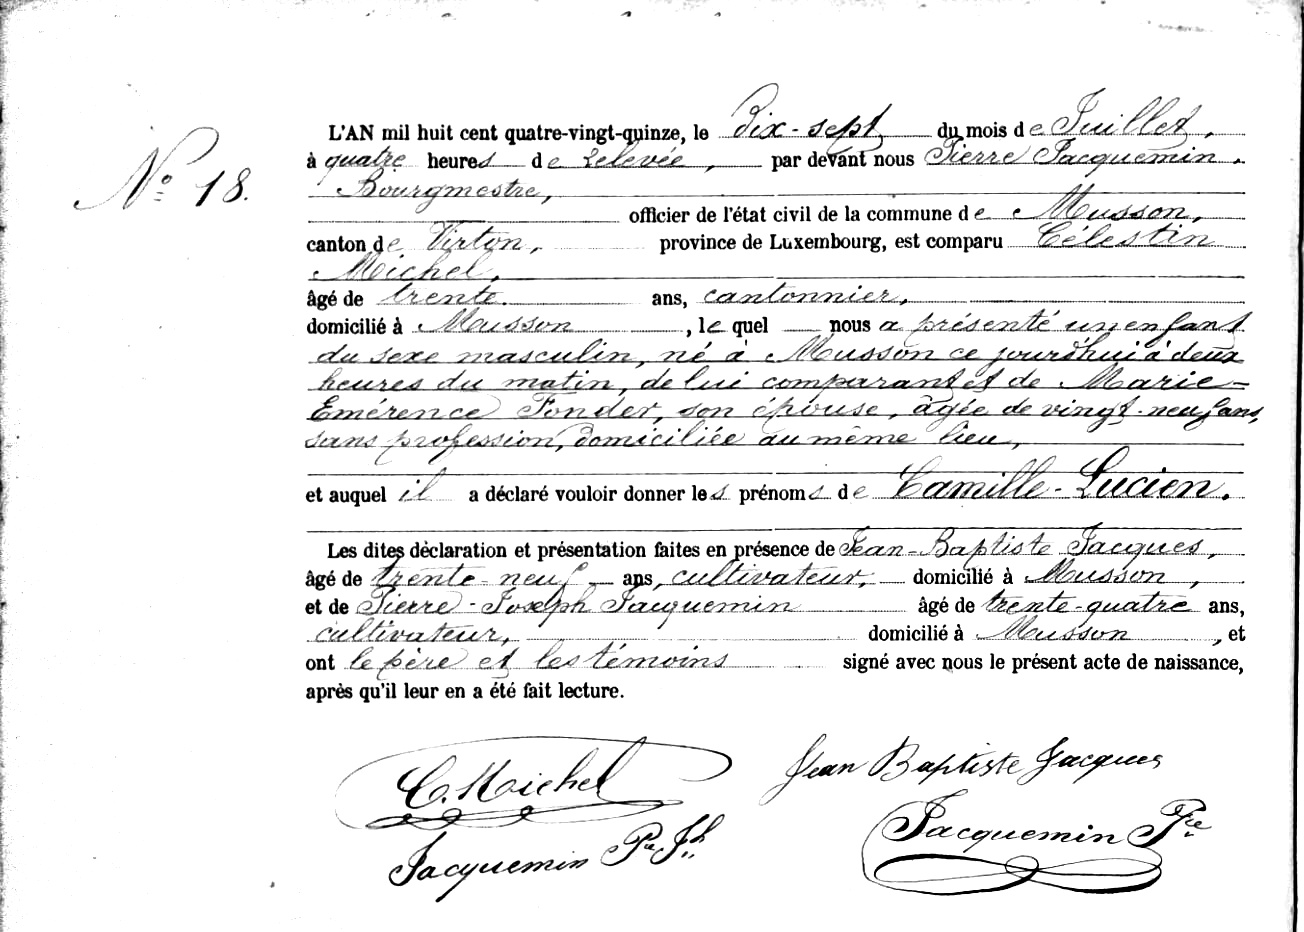 N° 18.
L'AN mil huit cent quatre-vingt-quinze, le Dix-sept du mois de Juillet,
à quatre heures de relevée, par devant nous Pierre Jacquemin.
Bourgmestre,
officier de l'état civil de la commune de Musson,
canton de Virton, province de Luxembourg, est comparu Célestin
Michel,
âgé de trente ans, cantonnier,
domicilié à Musson, le quel nous a présenté un enfant
du sexe masculin, né à Musson ce jourd'hui à deux
heures du matin, de lui comparant et de Marie-
Emérence Fonder, son épouse, âgée de vingt-neuf ans,
sans profession, domiciliée au même lieu,
et auquel il a déclaré vouloir donner les prénoms de Camille-Lucien.
Les dites déclaration et présentation faites en présence de Jean-Baptiste Jacques,
âgé de trente-neuf ans, cultivateur, domicilié à Musson,
et de Pierre-Joseph Jacquemin âgé de trente-quatre ans,
cultivateur, domicilié à Musson, et
ont le père et les témoins signé avec nous le présent acte de naissance,
après qu'il leur en a été fait lecture.
C. Michel Jean Baptiste Jacques
Jacquemin Pre Jh Jacquemin Pre